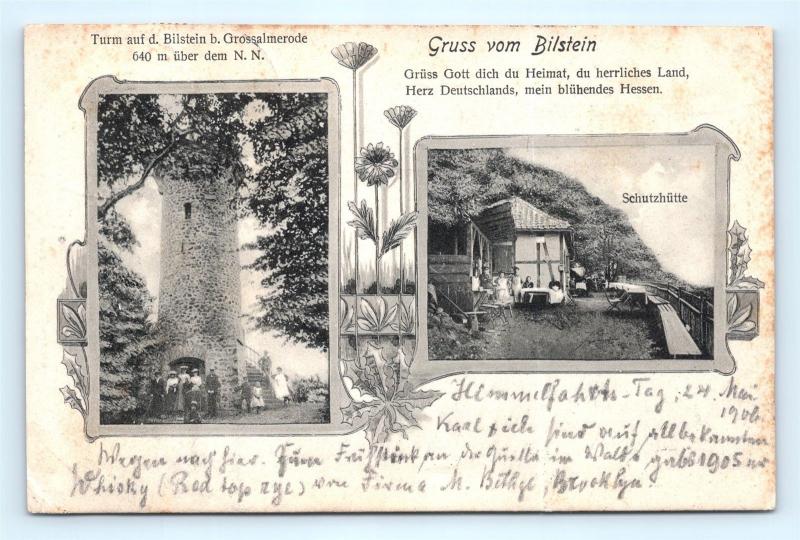 Turm auf d. Bilstein b. Grossalmerode
640 m über dem N. N.
Gruss vom Bilstein
Grüss Gott dich du Heimat, du herrliches Land,
Herz Deutschlands, mein blühendes Hessen.
Schutzhütte
Himmelfahrts-Tag, 24. Mai
1906
sind auf allbekannten
Wegen nach hier. Zum Frühstück an der Quelle im Walde gabs 1905er
Whisky (Red top rye) von Firma M. Bethge, Brooklyn.